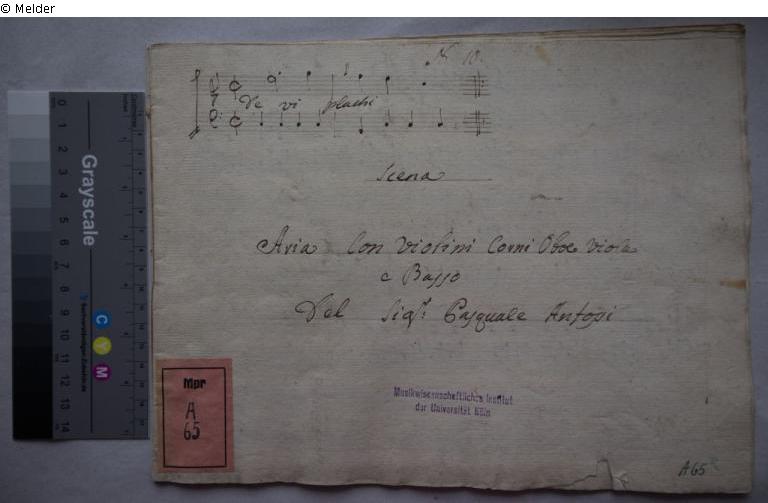 © Melder
N. 10.
De vi plachi
Scena
Aria Con Violini Corni Oboe Viola
e Basso
Del Sigr. Pasquale Anfossi
Mpr
A
65
Musikwissenschaftliches Institut
der Universität Köln
A65
Grayscale
C
Y
M
0
1
2
3
4
5
6
7
8
9
10
11
12
13
14